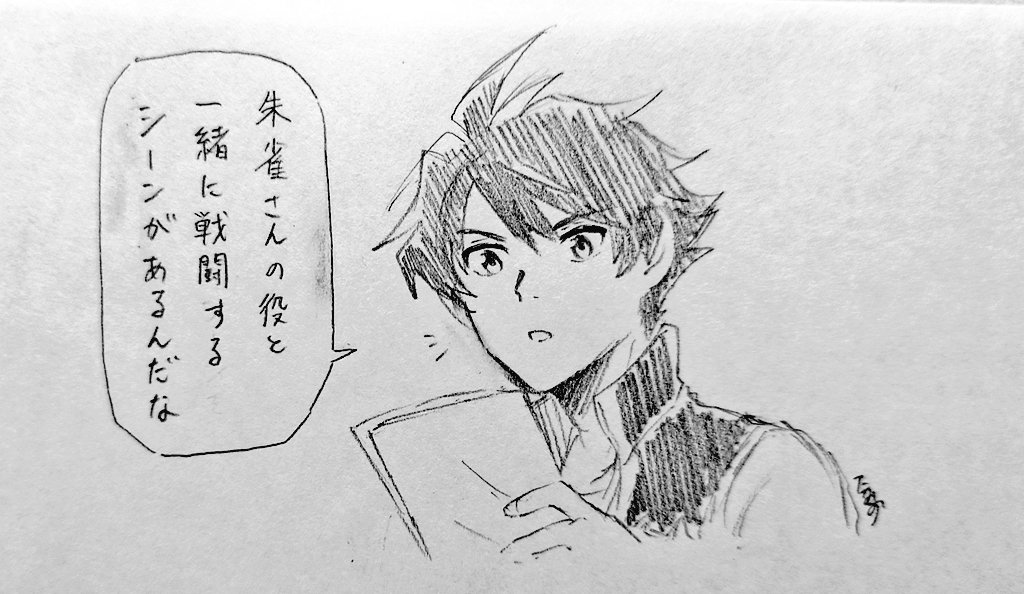 朱雀さんの役と
一緒に戦闘する
シーンがあるんだな